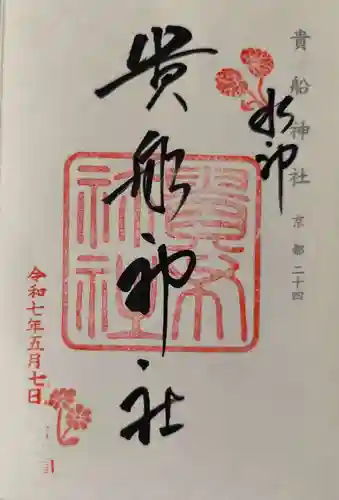 貴船神社 京都二十四
水神
貴船神社
貴布祢社
令和七年五月七日